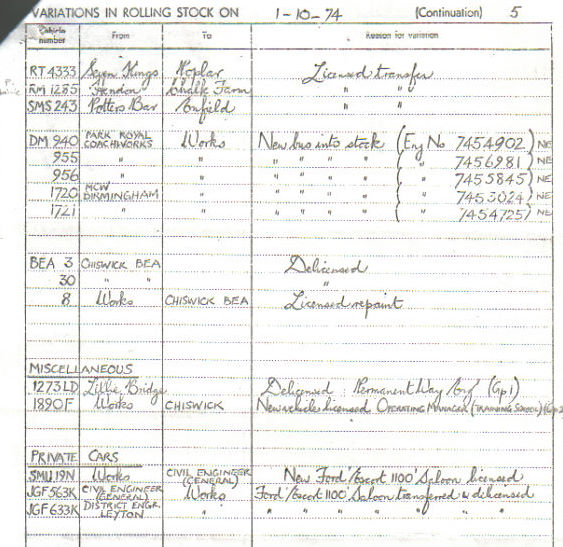 VARIATIONS IN ROLLING STOCK ON 1-10-74 (Continuation) 5
Vehicle number From To Reason for variation
RT 4333 Seven Kings Poplar Licensed transfer
RM 1285 Hendon Chalk Farm " "
SMS 243 Potters Bar Enfield
DM 940 PARK ROYAL COACHWORKS Works New bus into stock (Eng No 7454902) NE
955 " " " " " " ( " 7456981) NE
956 " " " " " " ( " 7455845) NE
1720 MCW BIRMINGHAM " " " " " ( " 7453024) NE
1721 " " " " " " ( " 7454725) NE
BEA 3 CHISWICK BEA Delicensed
30 " " "
8 Works CHISWICK BEA Licensed repaint
MISCELLANEOUS
1273LD Lillie Bridge Delicensed Permanent Way (Gp1)
1890F Works CHISWICK New vehicle licensed OPERATING MANAGER (TRAINING SCHOOL) (Gp2
PRIVATE CARS
SMU19N Works CIVIL ENGINEER (GENERAL) New Ford 'Escort 1100' Saloon licensed
JGF563K CIVIL ENGINEER (GENERAL) Works Ford 'Escort 1100' Saloon transferred & delicensed
JGF633K DISTRICT ENGR. LEYTON " " " " " "